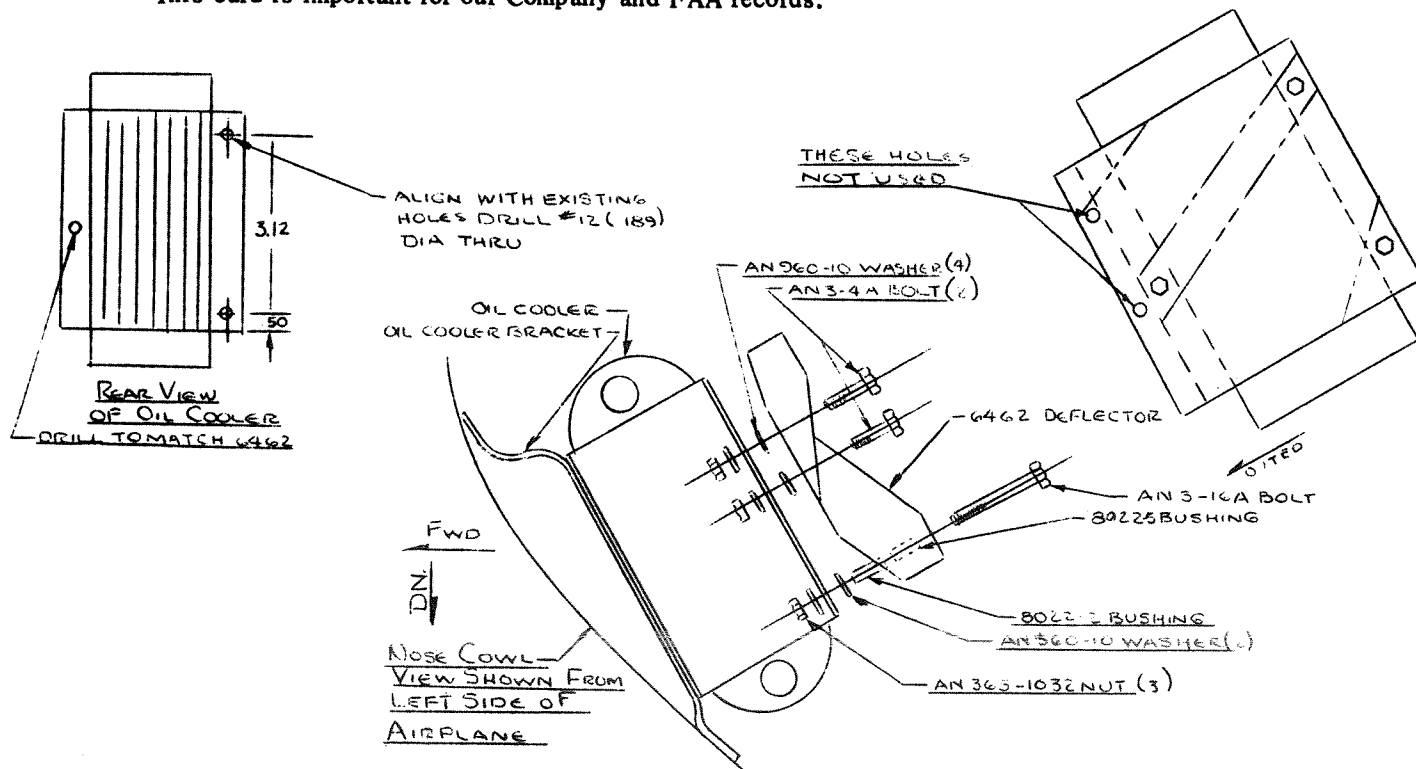 This card is important for our Company and FAA records.
ALIGN WITH EXISTING
HOLES DRILL #12 (189)
DIA THRU
3.12
50
REAR VIEW
OF OIL COOLER
DRILL TO MATCH 6462
THESE HOLES
NOT USED
AN960-10 WASHER (4)
AN3-4A BOLT
OIL COOLER
OIL COOLER BRACKET
6462 DEFLECTOR
AN3-16A BOLT
80225 BUSHING
8022-2 BUSHING
AN960-10 WASHER
AN365-1032 NUT (3)
FWD
DN.
NOSE COWL
VIEW SHOWN FROM
LEFT SIDE OF
AIRPLANE